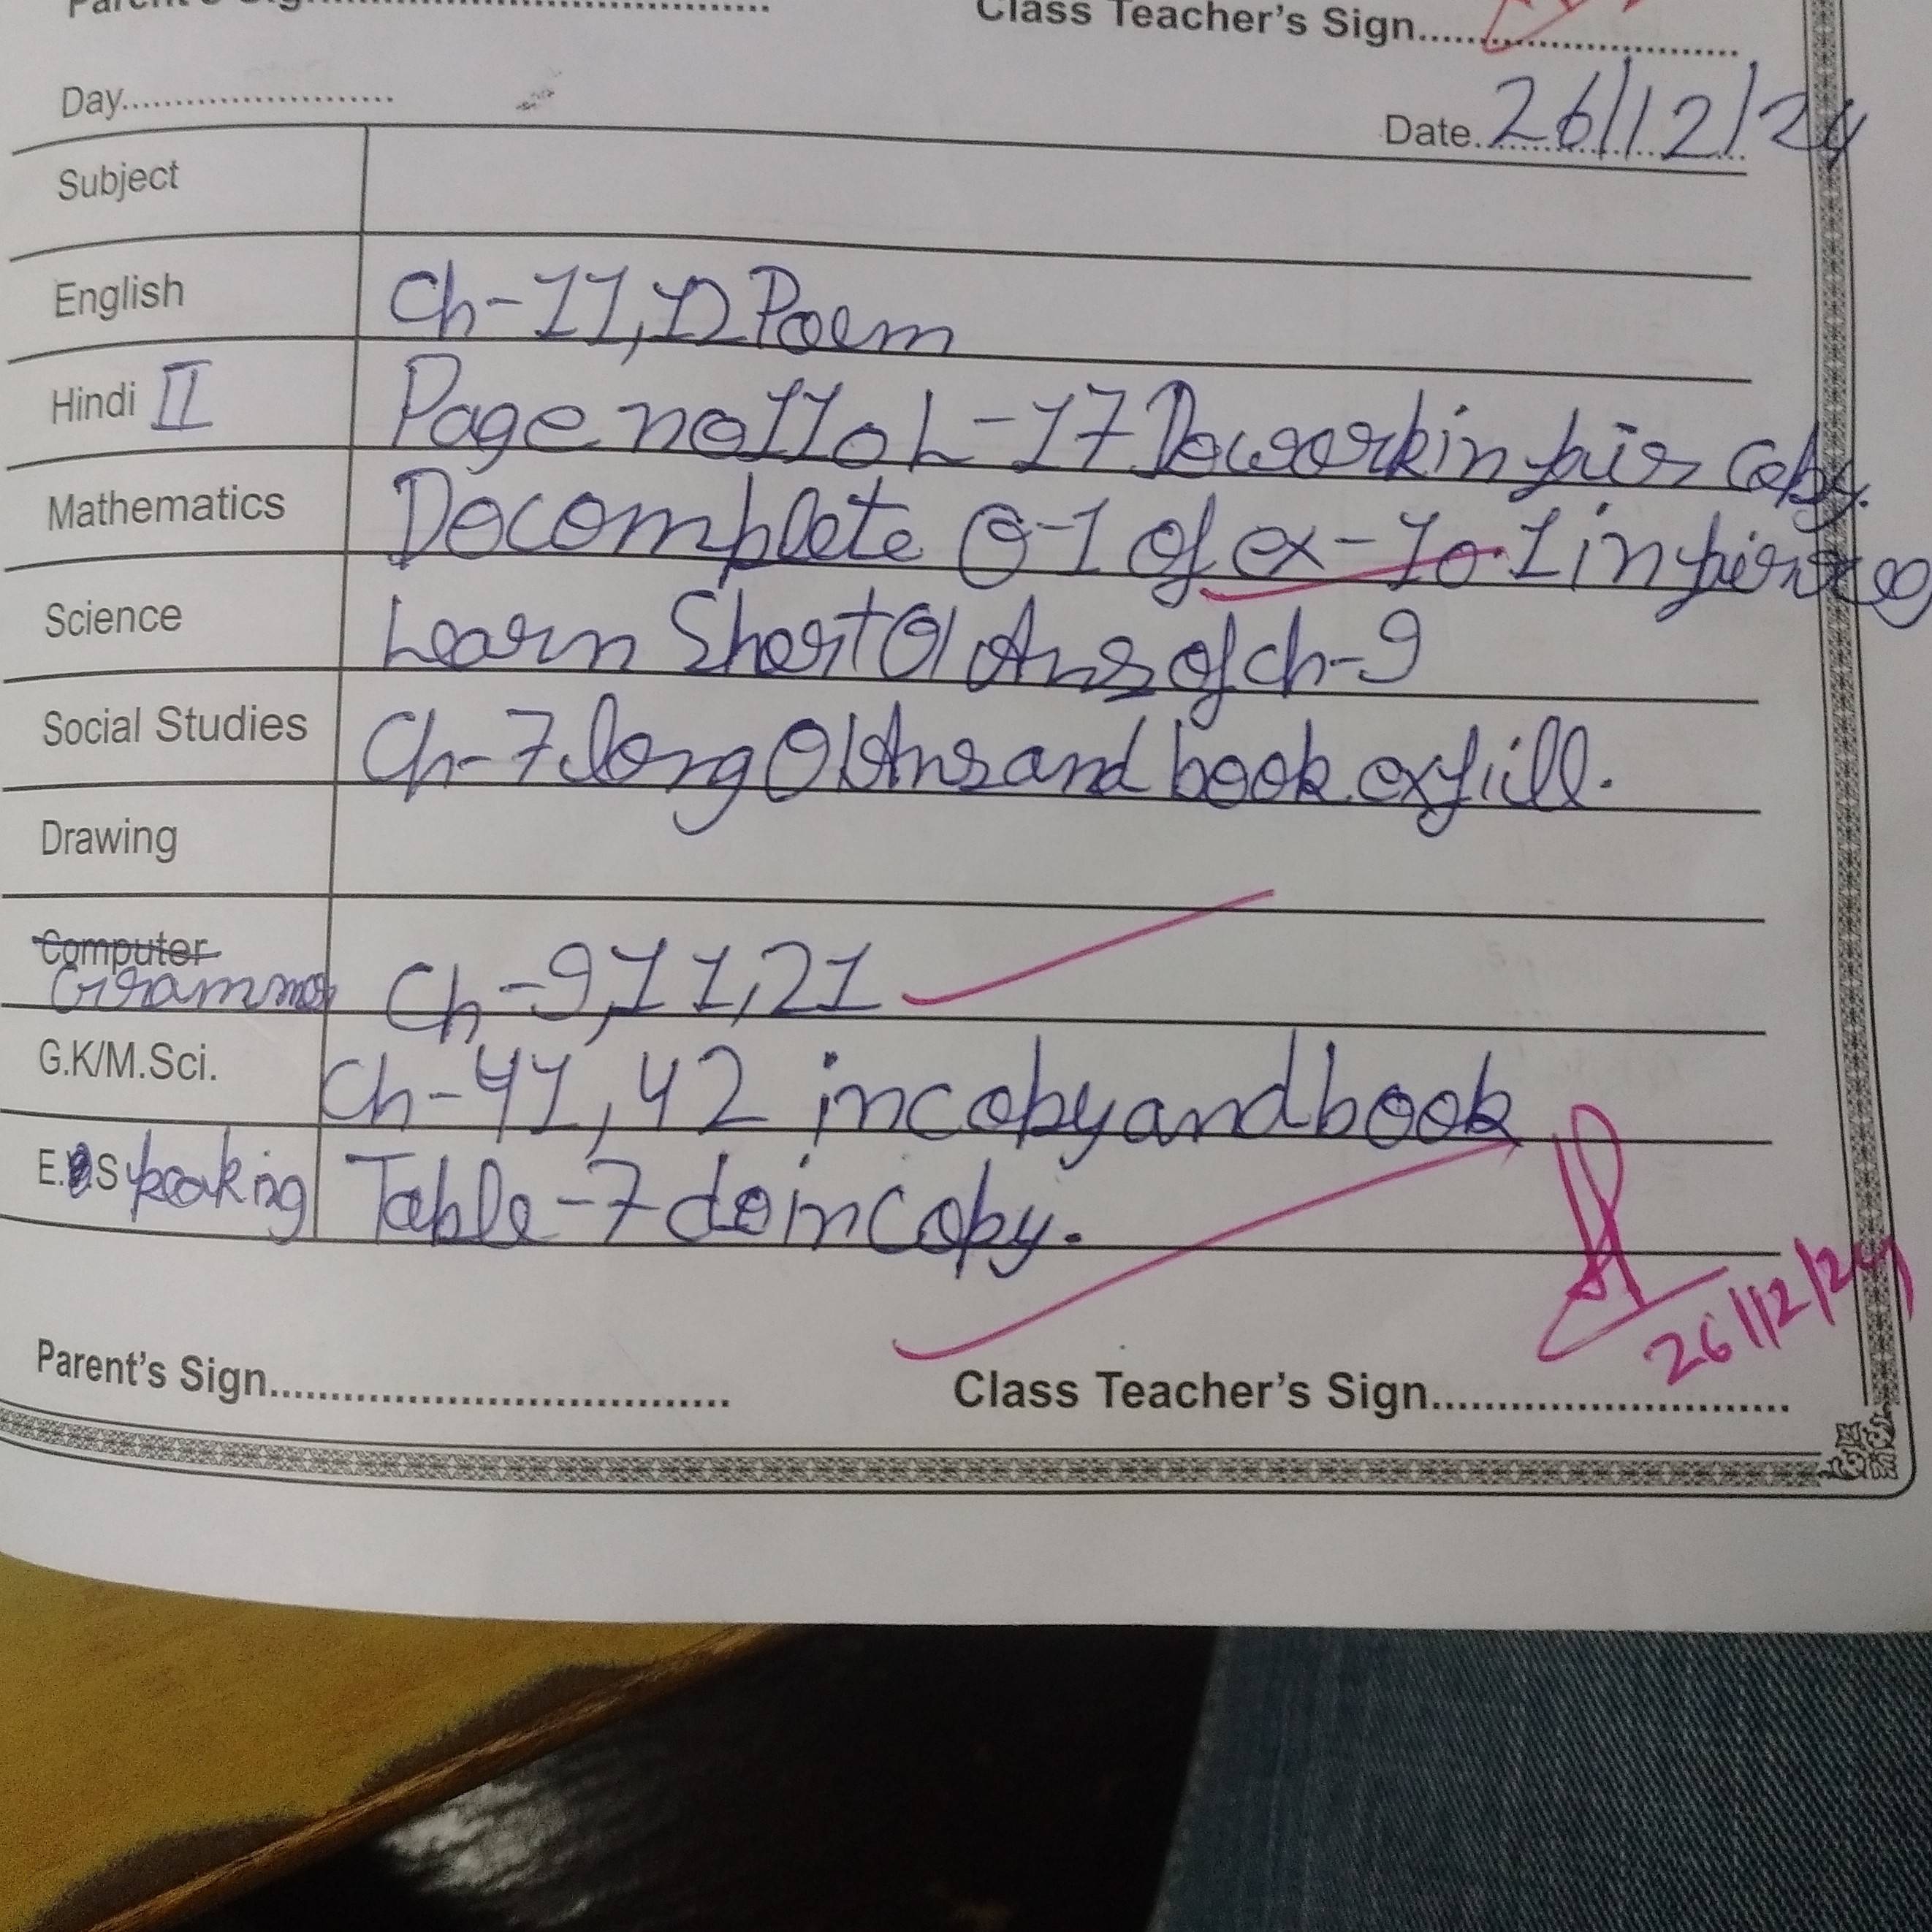 Parent's Sign..............................
Class Teacher's Sign..............................
Day........................
Date. 26/12/24
Subject
English Ch-11,12 Poem
Hindi II Page no 110 L-17 Do work in copy.
Mathematics Do complete Q-1 of ex-10.1 in
Science Learn Short Q/Ans of ch-9
Social Studies Ch-7 long Q/Ans and book ex fill.
Drawing
Computer
Grammar Ch-9,11,21
G.K/M.Sci. Ch-41,42 in copy and book
E. Speaking Table-7 do in copy.
26/12/24
Parent's Sign..............................
Class Teacher's Sign..............................